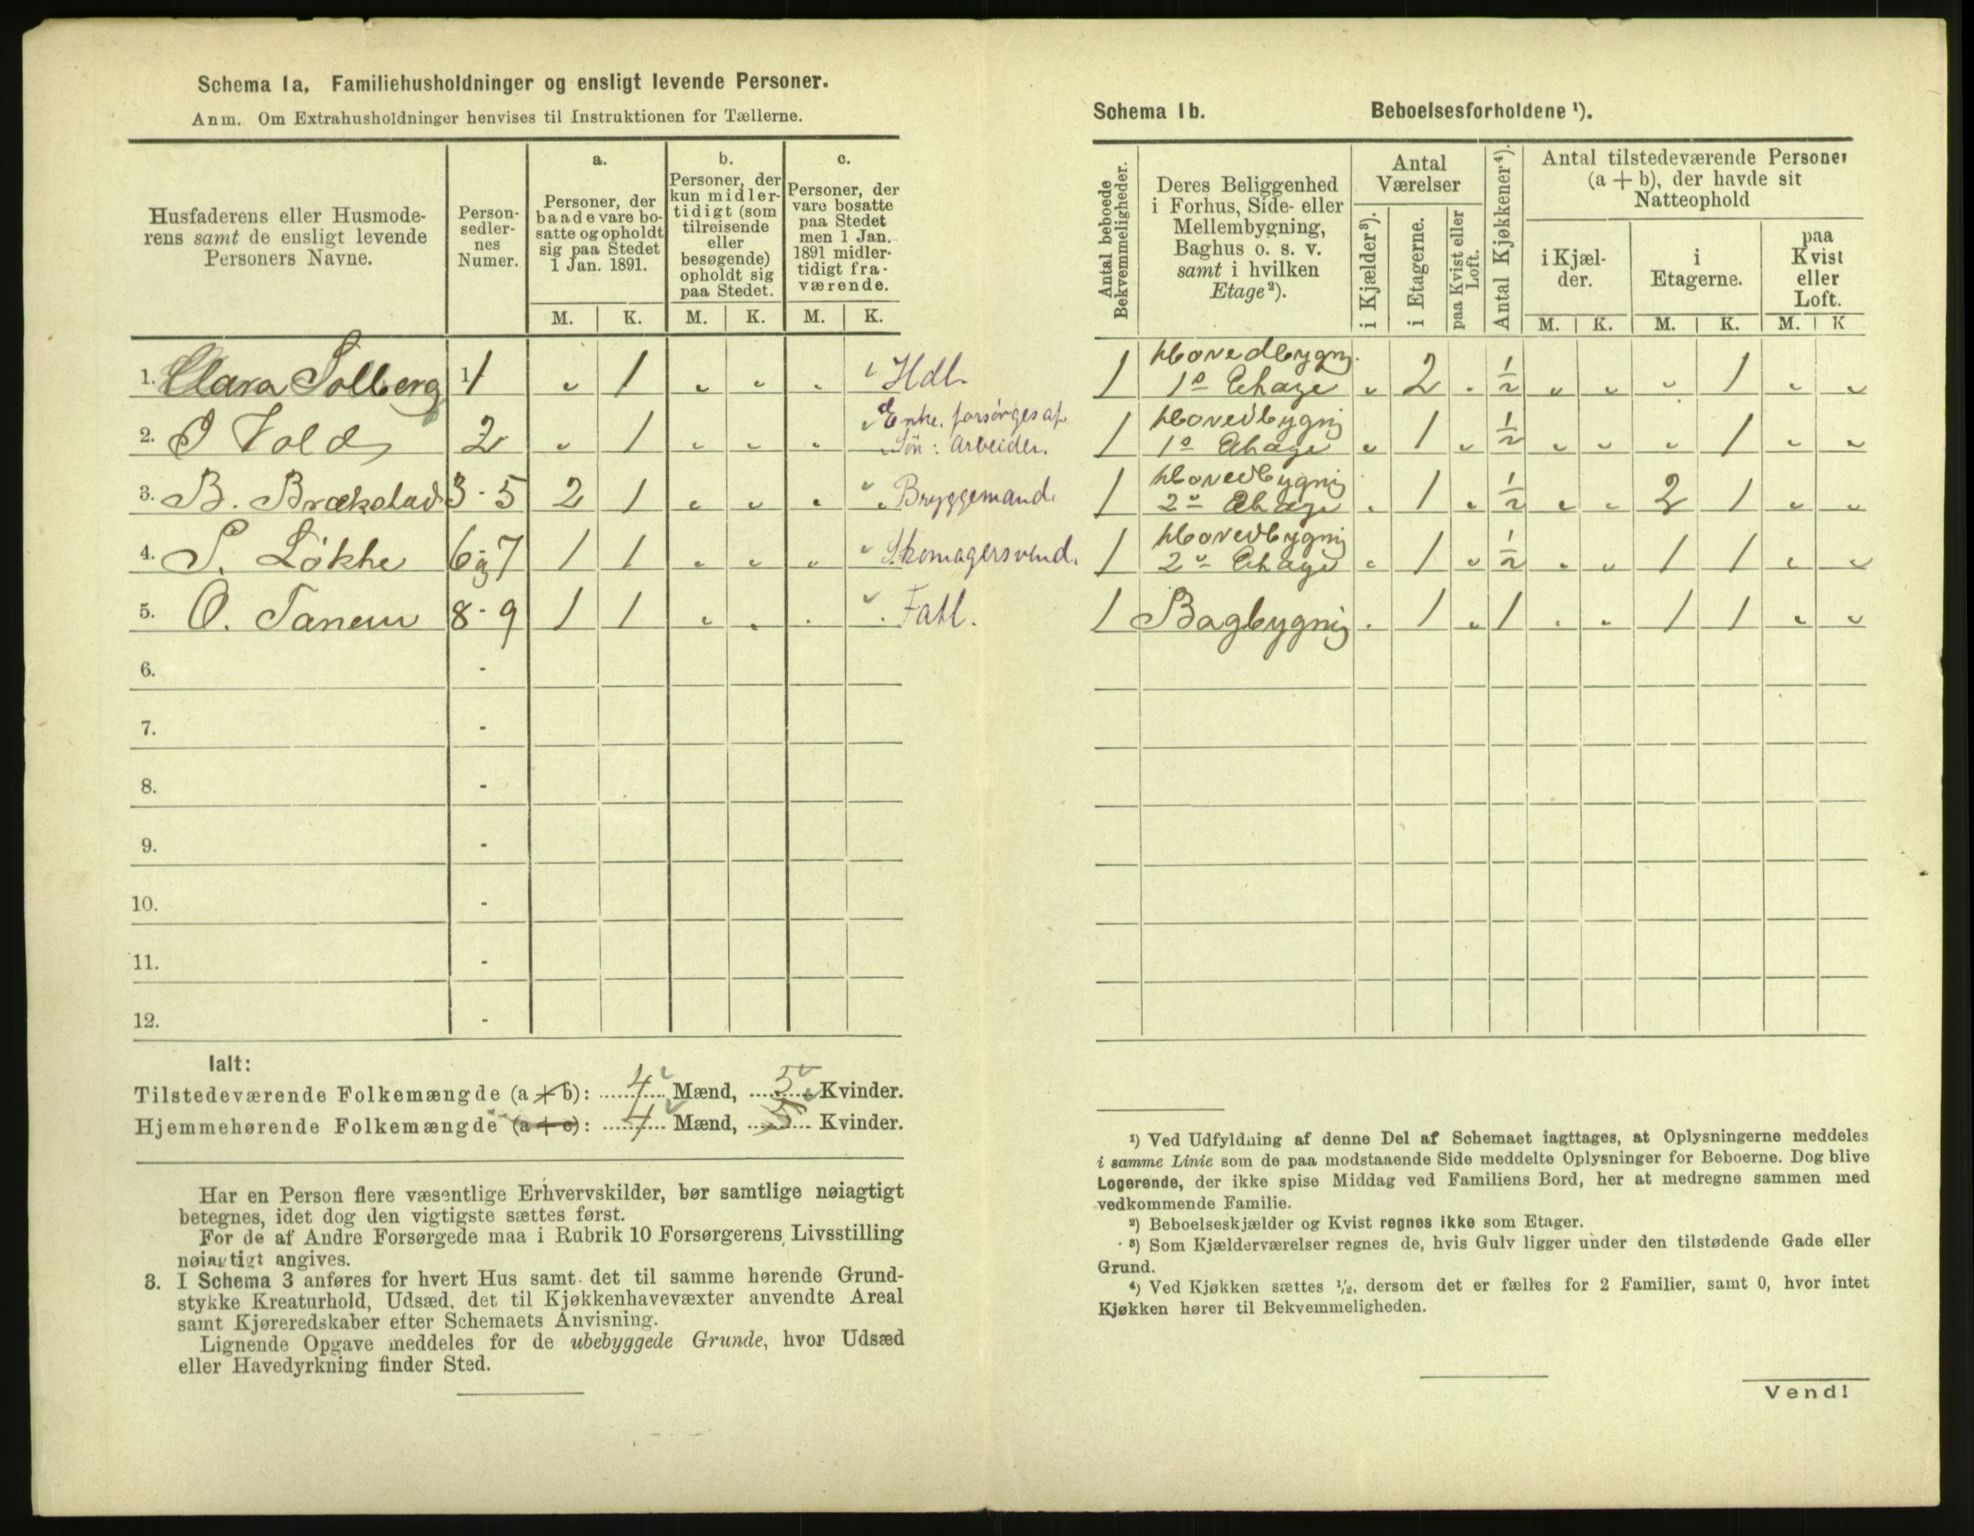 Schema 1a, Familiehusholdninger og ensligt levende Personer.
Anm. Om Extrahusholdninger henvises til Instruktionen for Tællerne.
Husfaderens eller Husmode-
rens samt de ensligt levende
Personers Navne.
Person-
sedler-
nes
Numer.
a.
Personer, der
baade vare bo-
satte og opholdt
sig paa Stedet
1 Jan. 1891.
b.
Personer, der
kun midler-
tidigt (som
tilreisende
eller
besøgende)
opholdt sig
paa Stedet.
c.
Personer, der
vare bosatte
paa Stedet
men 1 Jan.
1891 midler-
tidigt fra-
værende.
M. K. M. K. M. K.
1. Clara Solberg 1 „ 1 „ „ „ Hdl.
2. J Vold 2 „ 1 „ „ „ Enke. forsørges af
Søn: Arbeider.
3. B. Brækstad 3 - 5 2 1 „ „ „ „ Bryggemand.
4. P. Løkke 6 og 7 1 1 „ „ „ Skomagersvend.
5. O. Tanem 8 - 9 1 1 „ . . . Fatl.
6. -
7. -
8. -
9. -
10. -
11. -
12. -
Ialt:
Tilstedeværende Folkemængde (a + b): 4 Mænd, 5 Kvinder.
Hjemmehørende Folkemængde (a + c): 4 Mænd, 5 Kvinder.
Har en Person flere væsentlige Erhvervskilder, bør samtlige nøiagtigt
betegnes, idet dog den vigtigste sættes først.
For de af Andre Forsørgede maa i Rubrik 10 Forsørgerens Livsstilling
nøiagtigt angives.
3. I Schema 3 anføres for hvert Hus samt det til samme hørende Grund-
stykke Kreaturhold, Udsæd, det til Kjøkkenhavevæxter anvendte Areal
samt Kjøreredskaber efter Schemaets Anvisning.
Lignende Opgave meddeles for de ubebyggede Grunde, hvor Udsæd
eller Havedyrkning finder Sted.
Schema 1b. Beboelsesforholdene ¹).
Antal beboede
Bekvemmeligheder.
Deres Beliggenhed
i Forhus, Side- eller
Mellembygning,
Baghus o. s. v.
samt i hvilken
Etage²).
Antal
Værelser
i Kjælder³).
i Etagerne.
paa Kvist eller
Loft.
Antal Kjøkkener⁴).
Antal tilstedeværende Personer
(a + b), der havde sit
Natteophold
i Kjæl-
der.
i
Etagerne.
paa
Kvist
eller
Loft.
M. K. M. K. M. K
1 Hovedbygnig.
1ᵒ Ethage „ 2 . ½ „ „ „ 1 „ „
1 Hovedbygnig
1ᵒ Ethage „ 1 „ ½ „ „ „ 1 „ „
1 Hovedbygnig
2ᵒ Ethage . 1 „ ½ „ „ 2 1 „ „
1 Hovedbygnig
2ᵒ Ethage . 1 „ ½ „ „ 1 1 „ „
1 Bagbygnig . 1 „ 1 „ „ 1 1 „ „
¹) Ved Udfyldning af denne Del af Schemaet iagttages, at Oplysningerne meddeles
i samme Linie som de paa modstaaende Side meddelte Oplysninger for Beboerne. Dog blive
Logerende, der ikke spise Middag ved Familiens Bord, her at medregne sammen med
vedkommende Familie.
²) Beboelseskjælder og Kvist regnes ikke som Etager.
³) Som Kjælderværelser regnes de, hvis Gulv ligger under den tilstødende Gade eller
Grund.
⁴) Ved Kjøkken sættes ½, dersom det er fælles for 2 Familier, samt 0, hvor intet
Kjøkken hører til Bekvemmeligheden.
Vend!